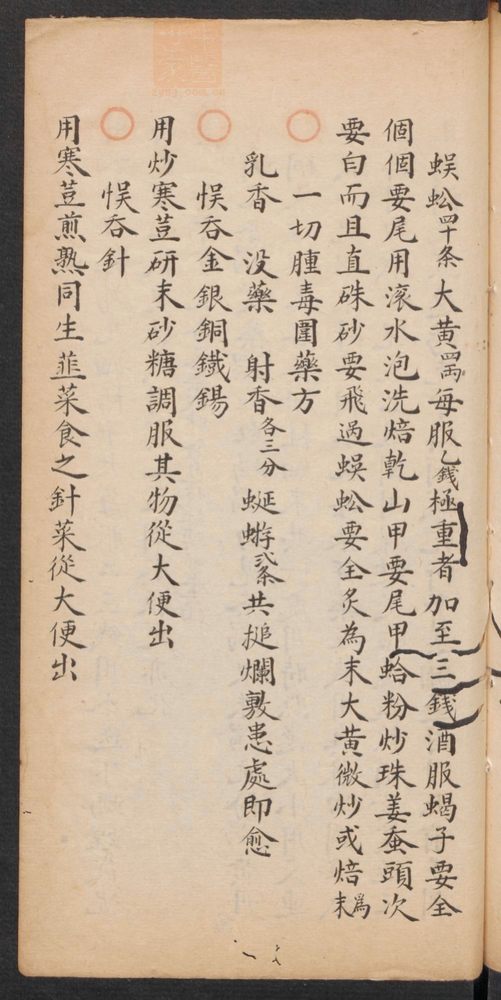 蜈蚣四十条大黄四两每服乙錢極重者加至三錢酒服蝎子要全
個個要尾用滚水泡洗焙乾山甲要尾甲蛤粉炒珠姜蚕頭次
要白而且直硃砂要飛過蜈蚣要全炙為末大黄微炒或焙為末
一切腫毒圍藥方
乳香 没藥 射香各三分 蜒蝣弍条共搥爛敷患處即愈
悮吞金銀銅鐵錫
用炒寒荳研末砂糖調服其物從大便出
悮吞針
用寒荳煎熟同生韮菜食之針菜從大便出